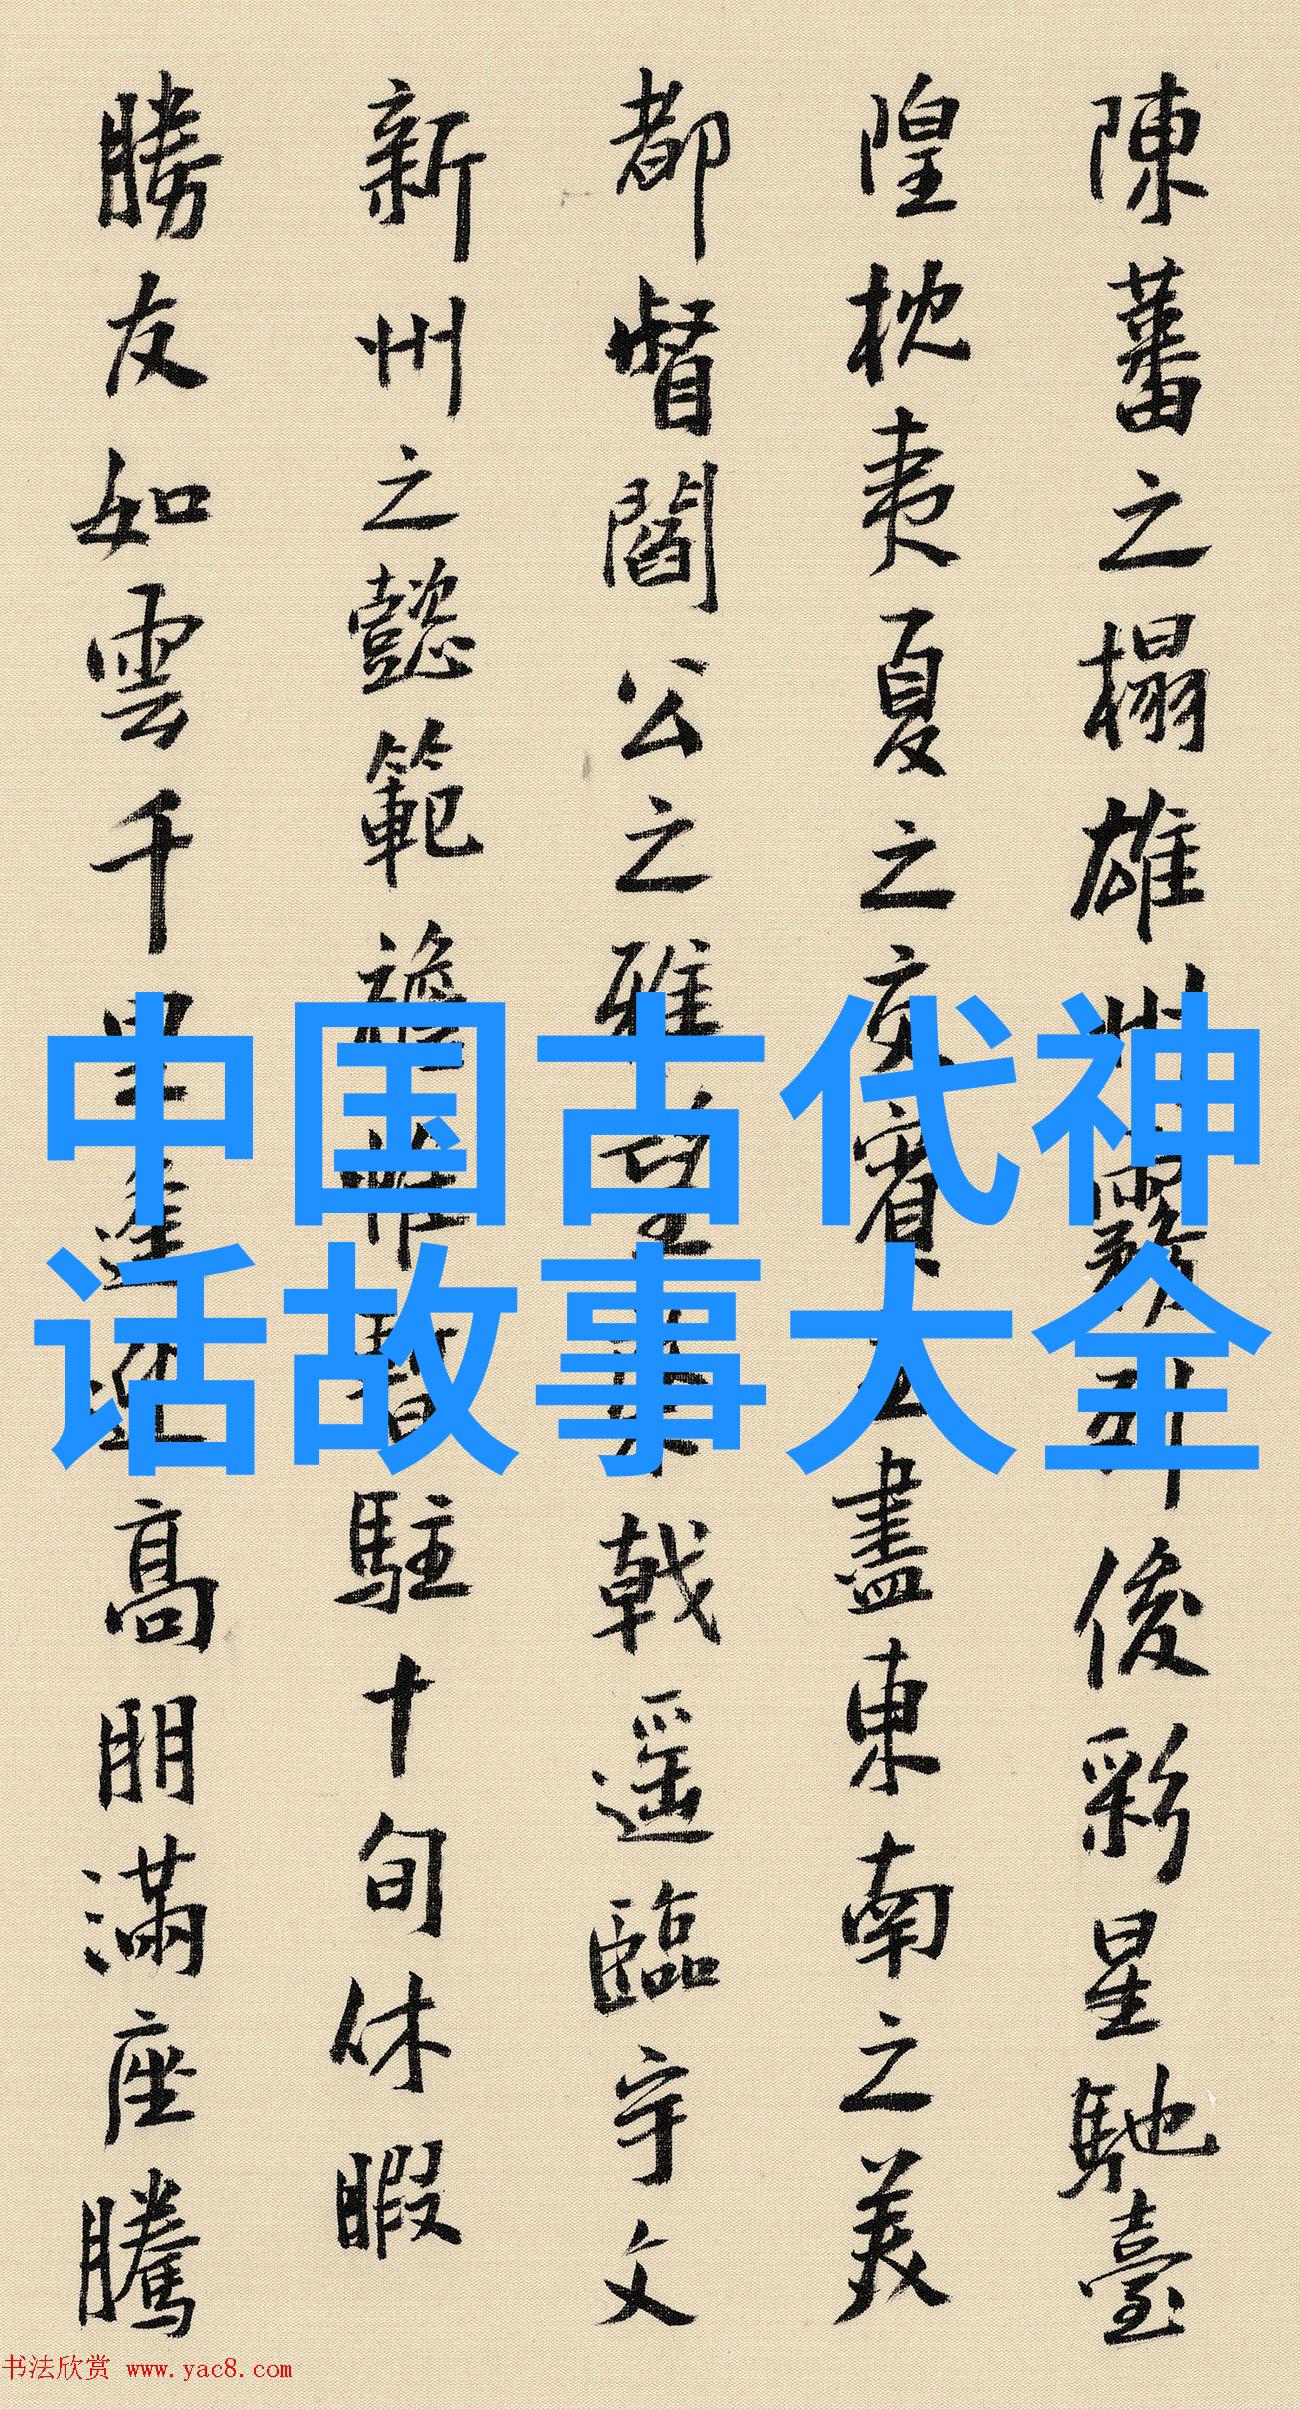 陳蕃之榻雄州霧列俊彩星馳臺
隍枕夷夏之交賓主盡東南之美
都督閻公之雅望棨戟遥臨宇文
新州之懿範襜帷暫駐十旬休暇
勝友如雲千里逢迎高朋滿座騰
中国古代神
话故事大全
书法欣赏 www.yac8.com